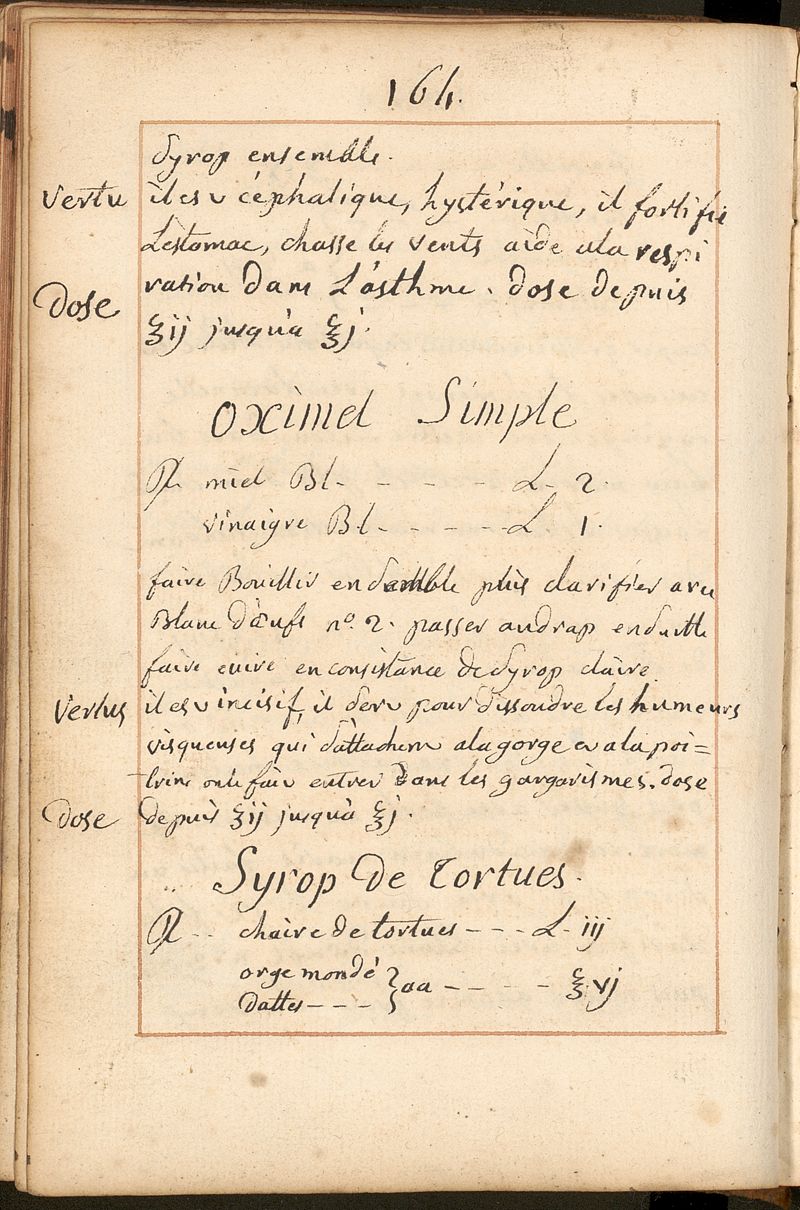 164.
Syrop ensemble.
vertu ilest céphalique, hystérique, il fortifie
Lestomac, chasse les vents aide ala respi
ration dans L'asthme. dose depuis
Dose ʒij jusqu'a ℥j.
oximel Simple
℞ miel Bl. - - - - - L. 2
vinaigre Bl. - - - - - L 1.
faire Bouillir ensemble puis clarifier avec
Blanc d'œufs n.° 2. passer audrap ensuitte
faire cuire en consistance de Syrop claire
Vertus ilest incisif, il sert pour dissoudre les humeurs
visqueuses qui s'attachent alagorge et ala poi=
trine on le fait entrer dans les gargarismes. dose
Dose depuis ʒij jusqu'à ℥j.
Syrop De Tortues.
℞ .. chaire de tortues - - - L. iij
orge mondé } aa - - - - ℥ vj
dattes - - -